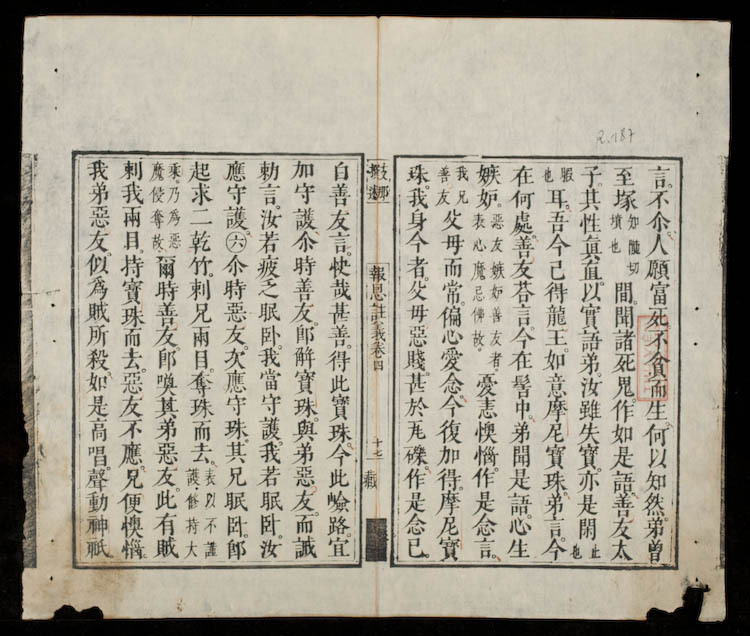 言。不尒。人願富死。不貪而生。何以知然。弟曾
至塚知隴切墳也間。聞諸死鬼。作如是語。善友太
子。其性眞直。以實語弟。汝雖失寶。亦是閑止也
暇也耳。吾今已得龍王。如意摩尼寶珠。弟言。今
在何處。善友荅言。今在髻中。弟聞是語。心生
嫉妒。惡友嫉妒善友者。表心魔忌佛故。憂恚懊惱。作是念言。
我兄善友父母而常。偏心愛念。今復加得。摩尼寶
珠。我身今者。父母惡賤。甚於瓦礫。作是念已。
報恩註義卷四
十七
白善友言。快哉甚善。得此寶珠。今此嶮路。宜
加守護。尒時善友。郎解寶珠。與弟惡友。而誡
勅言。汝若疲乏眠卧。我當守護。我若眠卧。汝
應守護。六尒時惡友。次應守珠。其兄眠卧。郎
起求二乾竹。刺兄兩目。奪珠而去。表以不謹護修持大
乘乃爲惡魔侵奪故爾時善友。郎喚其弟惡友。此有賊
刺我兩目。持寶珠而去。惡友不應。兄便懊惱。
我弟惡友。似爲賊所殺。如是高唱。聲動神祇
R.187